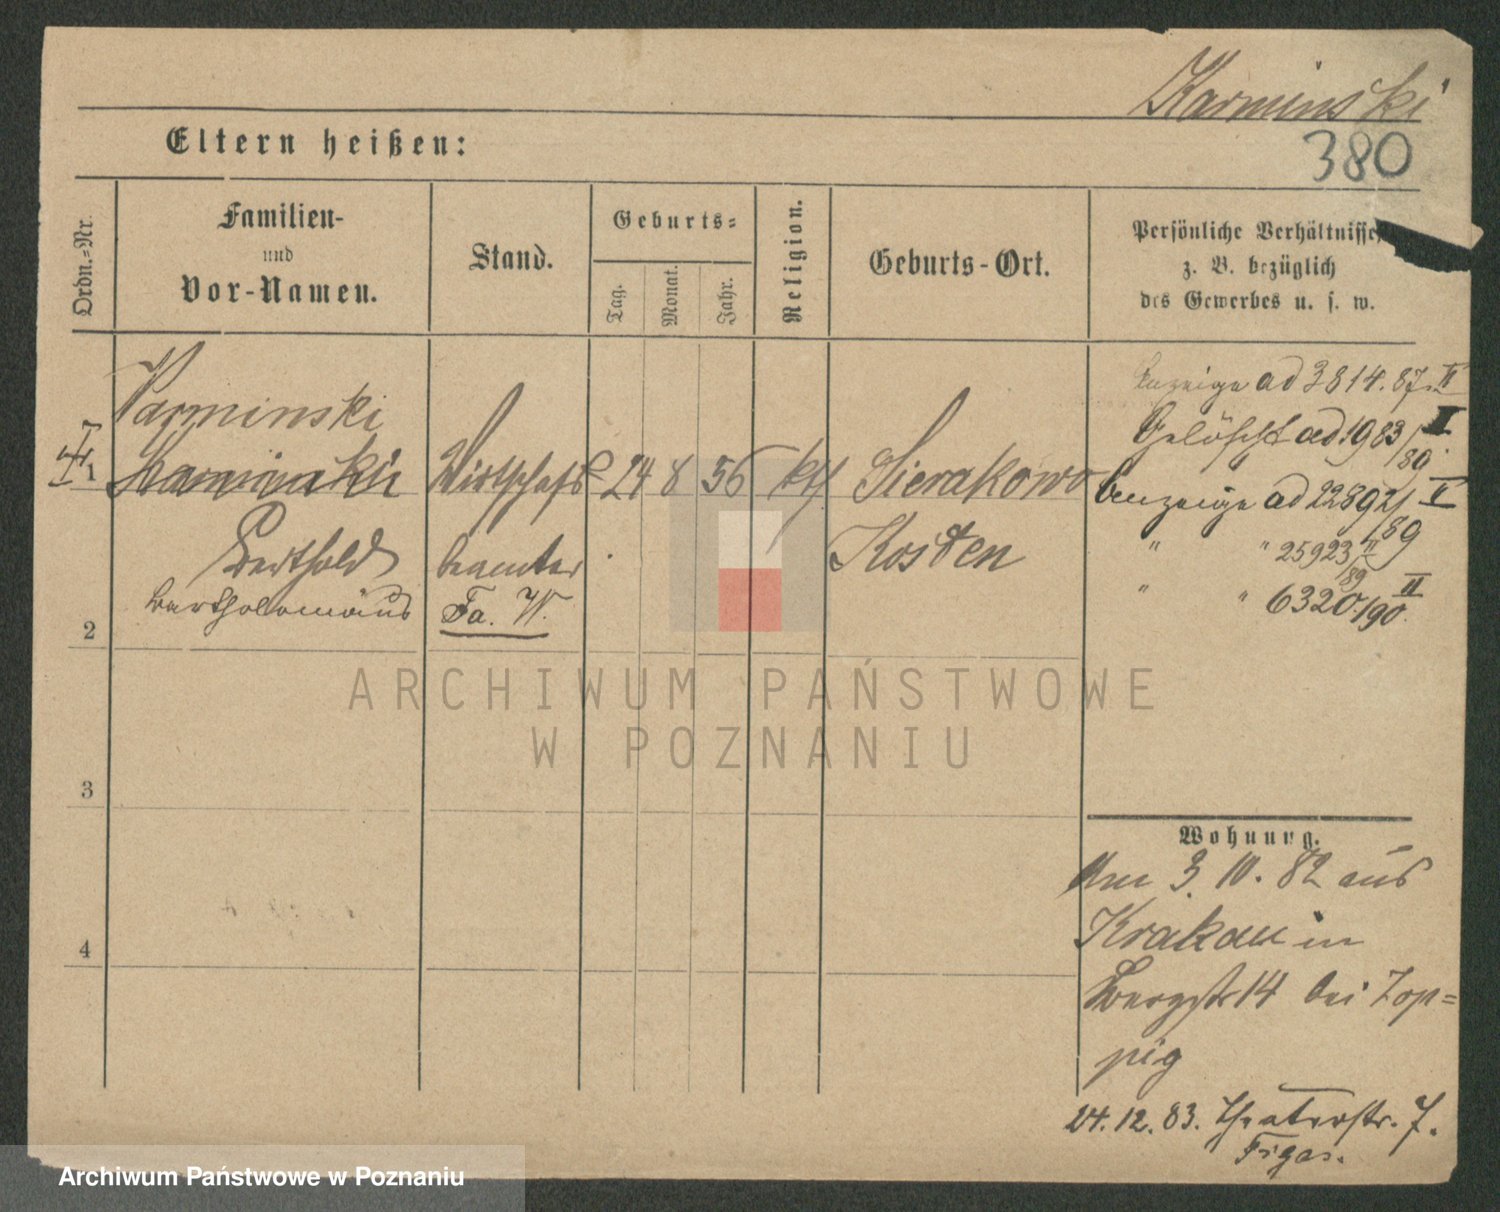 Karminski
380
Eltern heißen:
Ordn.-Nr.
Familien-
und
Vor-Namen.
Stand.
Geburts-
Tag.
Monat.
Jahr.
Religion.
Geburts-Ort.
Persönliche Verhältnisse,
z. B. bezüglich
des Gewerbes u. s. w.
Karminski
1
Wirthschafts 24 8 56 kth Sierakowo
Berthold
beamter
Kosten
Bartholomäus
Fa. W.
2
3
4
Anzeige ad 3814.87.II
Gelöscht ad 1983/89. I
Anzeige ad 22892/89 II
" " 25923/89 II
" " 6320./90. II
Wohnung.
Am 3. 10. 82 aus
Krakau in
Bergstr 14 bei Zop=
pig
24. 12. 83. Theaterstr. 7.
Figas.
ARCHIWUM PAŃSTWOWE
W POZNANIU
Archiwum Państwowe w Poznaniu